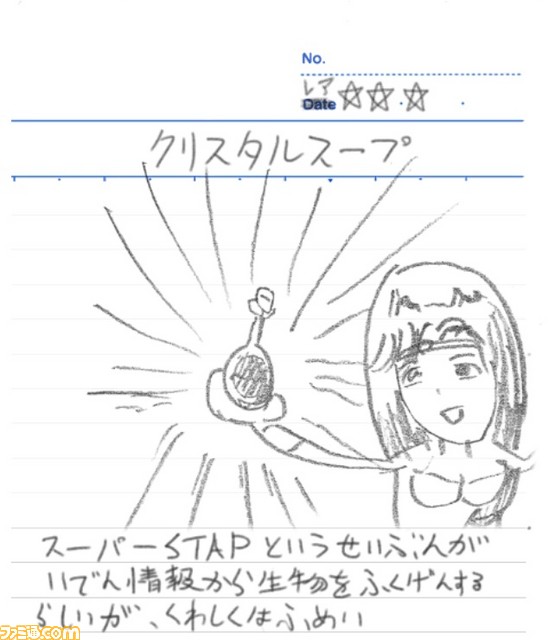 No.
レア☆☆☆
Date
クリスタルスープ
スーパーSTAPというせいぶんが
いでん情報から生物をふくげんする
らしいが、くわしくはふめい
ファミ通.com